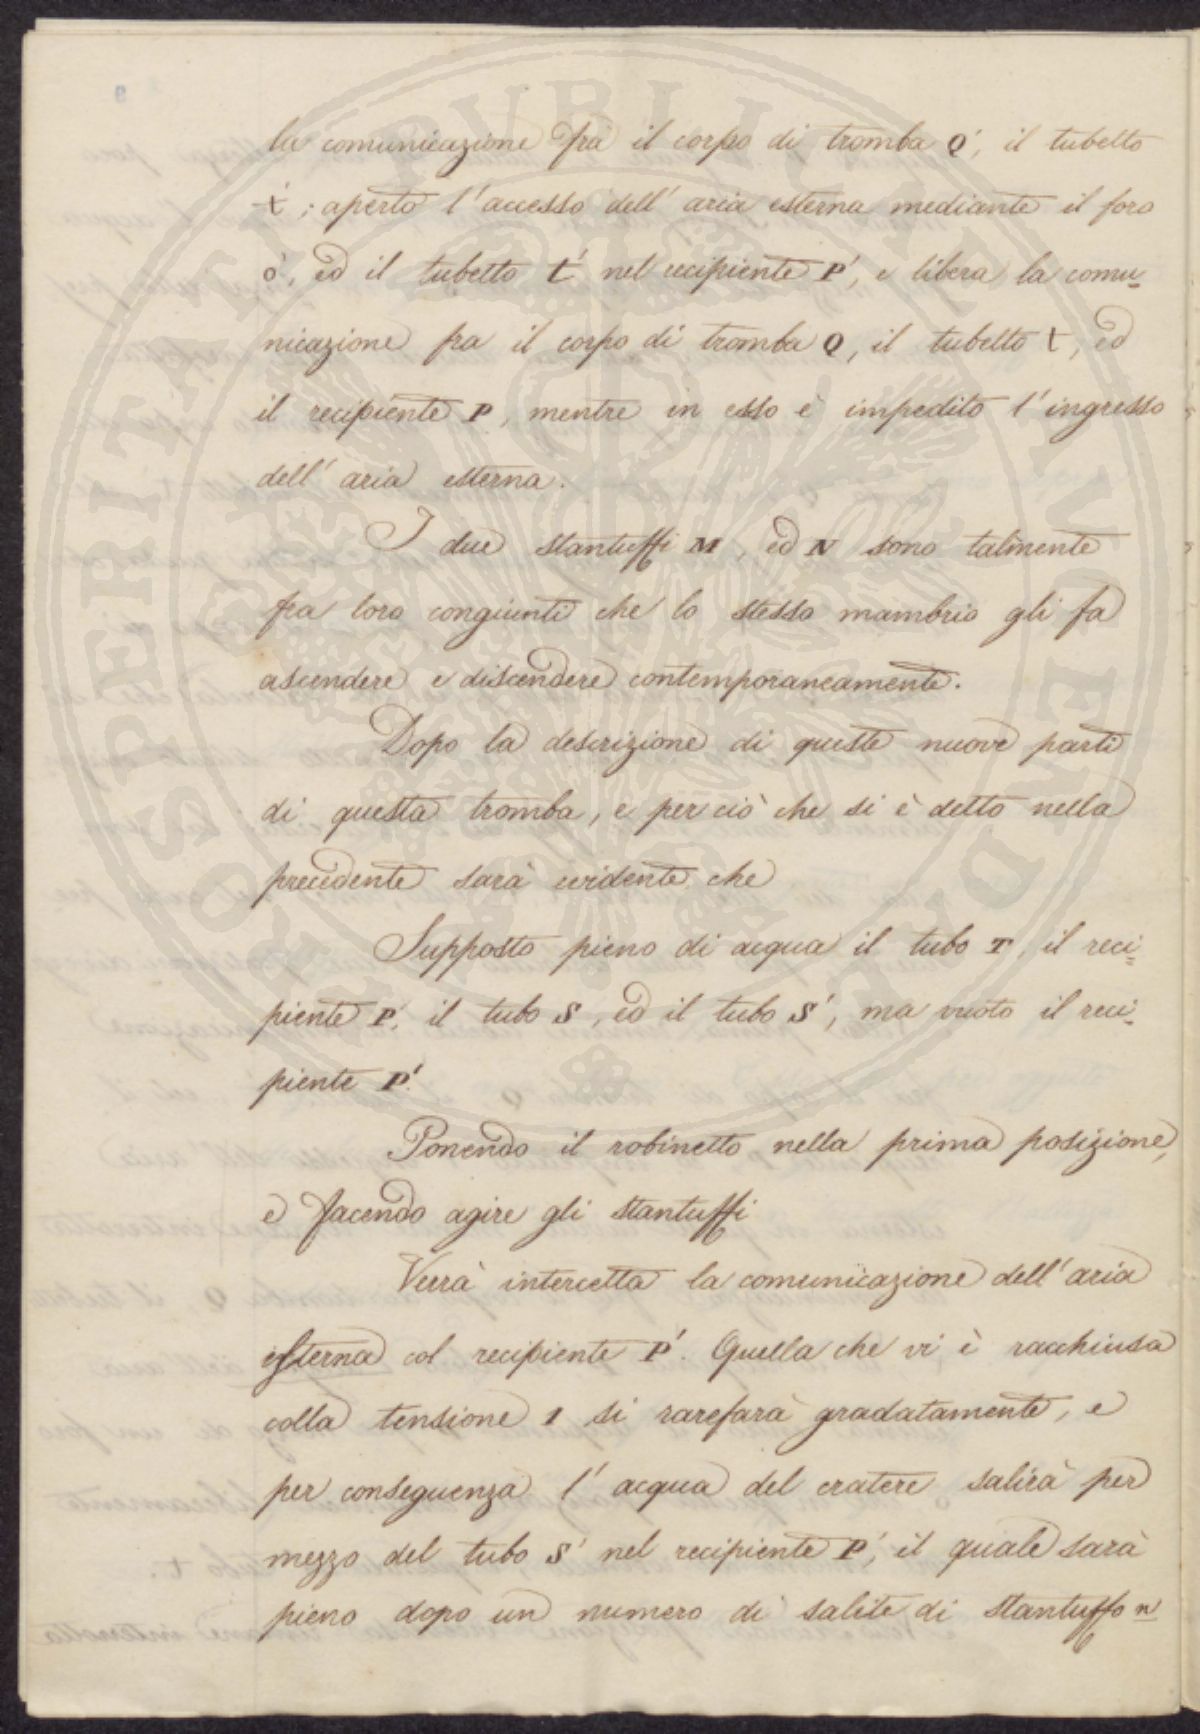 la comunicazione fra il corpo di tromba Q', il tubetto
t'; aperto l'accesso dell'aria esterna mediante il foro
o', ed il tubetto t' nel recipiente P', e libera la comu=
nicazione fra il corpo di tromba Q, il tubetto t, ed
il recipiente P, mentre in esso è impedito l'ingresso
dell'aria esterna.
I due stantuffi M, ed N sono talmente
fra loro congiunti che lo stesso mambrio gli fa
ascendere e discendere contemporaneamente.
Dopo la descrizione di queste nuove parti
di questa tromba, e per ciò che si è detto nella
precedente sarà evidente che
Supposto pieno di acqua il tubo T, il reci=
piente P, il tubo S, ed il tubo S', ma vuoto il reci=
piente P'.
Ponendo il robinetto nella prima posizione,
e facendo agire gli stantuffi
Verrà intercetta la comunicazione dell'aria
esterna col recipiente P'. Quella che vi è racchiusa
colla tensione 1 si rarefarà gradatamente, e
per conseguenza l'acqua del cratere salirà per
mezzo del tubo S' nel recipiente P', il quale sarà
pieno dopo un numero di salite di stantuffo n
PROSPERITATI PUBLICAE AUGENDAE